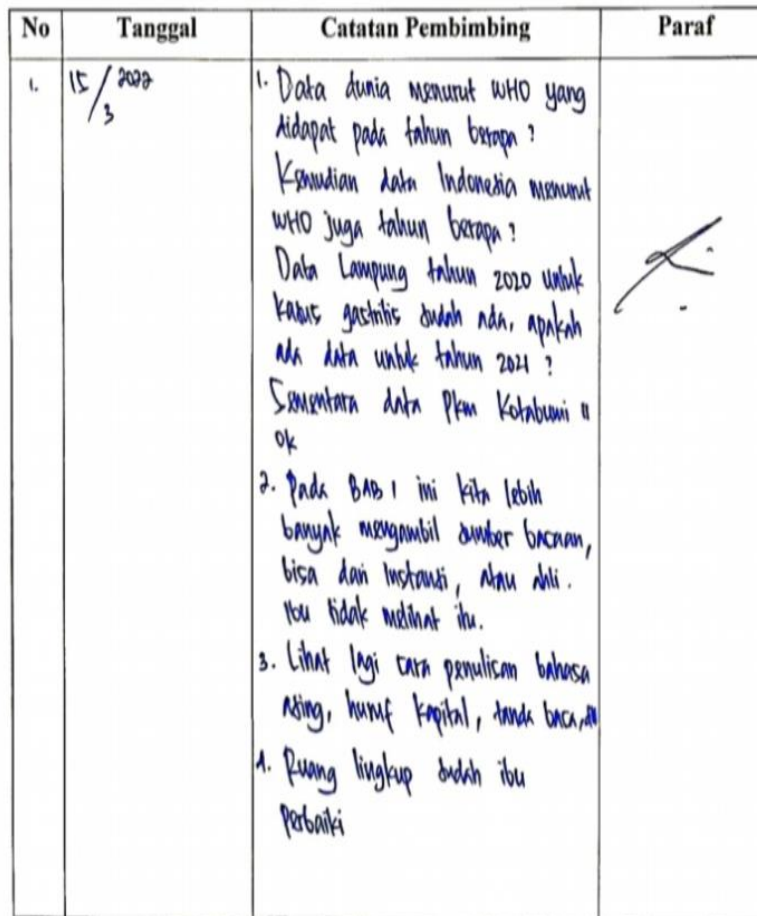 No Tanggal Catatan Pembimbing Paraf
1. 15/3 2022 1. Data dunia menurut WHO yang
didapat pada tahun berapa?
Kemudian data Indonesia menurut
WHO juga tahun berapa?
Data Lampung tahun 2020 untuk
kasus gastritis sudah ada, apakah
ada data untuk tahun 2021?
Sementara data Pkm Kotabumi II
ok
2. Pada BAB 1 ini kita lebih
banyak mengambil sumber bacaan,
bisa dari Instansi, atau ahli.
Ibu tidak melihat itu.
3. Lihat lagi cara penulisan bahasa
asing, huruf kapital, tanda baca, dll
4. Ruang lingkup sudah ibu
perbaiki